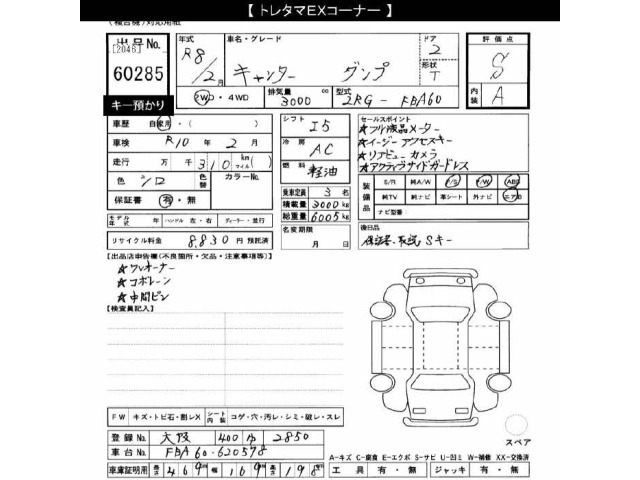 【 トレタマEXコーナー 】
(複合機)対応用紙
出品No.
[2046]
60285
キー預かり
年式
R8/2月
車名・グレード
キャンター ダンプ
ドア
2
形状
T
評価点
S
内装
A
2WD・4WD
排気量
3000 cc
型式
2RG- FBA60
車歴 自家用・( )
車検 R10年 2月
走行 万 千 310 km マイル
色 シロ 色替 カラーNo.
保証書 有・無
シフト I5
冷房 AC
燃料 軽油
乗車定員 3 名
積載量 3000 kg
総重量 6005 kg
セールスポイント
★フル液晶メーター
★イージーアクセスキー
★リアビューカメラ
★アクティブサイドガードレス
装備品
S/R 純A/W P/S P/W ABS
純TV 純ナビ 革シート 外ナビ エアB
ナビ型番
モデル年式 年 ハンドル 左・右 ディーラー・並行
リサイクル料金 8,830 円 預託済
名変期限
月 日
後日品
保証書、取説 Sキー
【出品店申告欄(不良箇所・欠品・注意事項等)】
★ワンオーナー
★コボレーン
★中間ピン
【検査員記入】
FW キズ・トビ石・割レX シート内装 コゲ・穴・汚レ・シミ・破レ・スレ
登録No. 大阪 400 か 2850
車台No. FBA60-620578
車庫証明用 長さ 469 cm 幅 169 cm 高さ 198 cm
スペア
A-キズ C-腐食 E-エクボ S-サビ U-凹ミ W-補修 XX-交換済
工具 有・無 ジャッキ 有・無